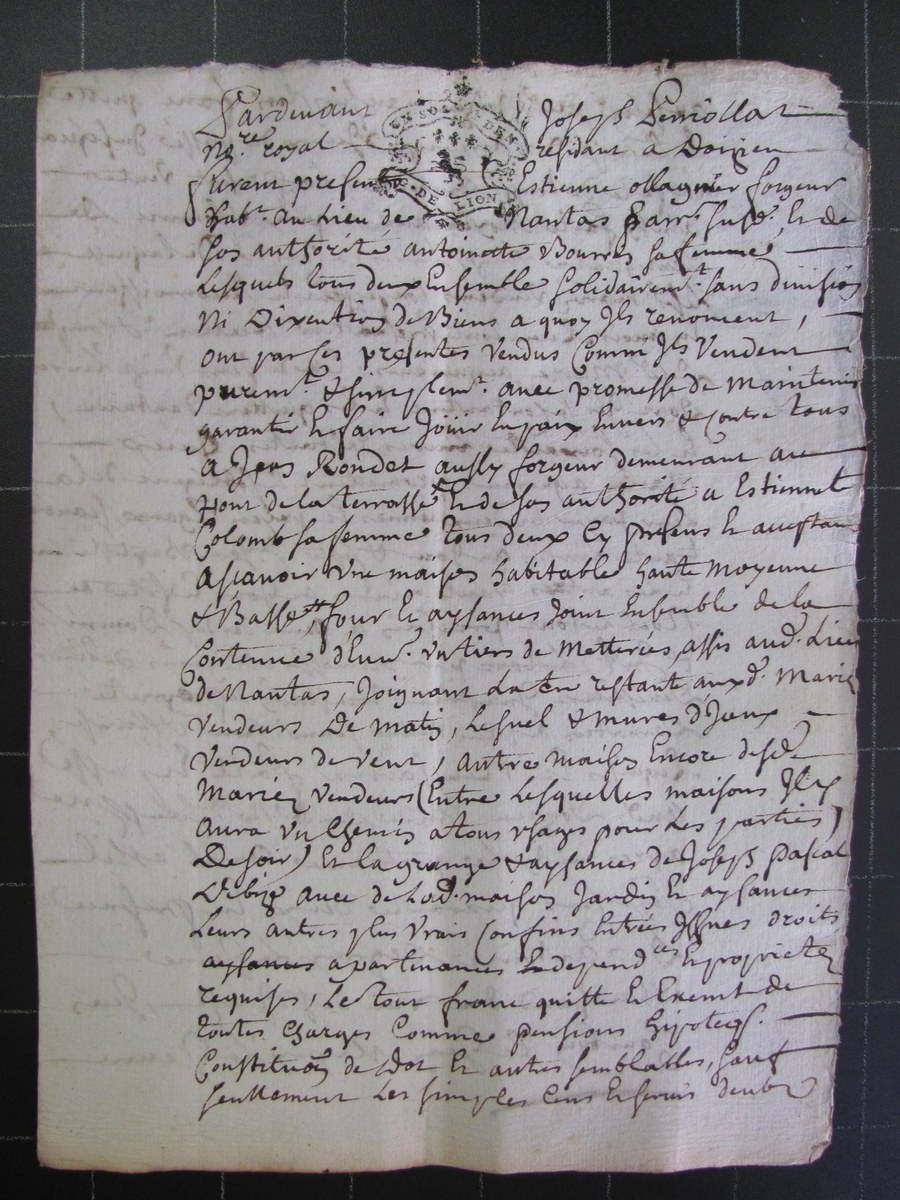 Pardevant Joseph Perriollat
No.re royal residant a Doizieu
furent presents Estienne ollagnier forgeur
hab.t au Lieu de Nantas parr.e susd.e Et de
son authorité antoinette Bourrin sa femme
Lesquels tous deux Ensemble solidairem.t sans division
Ni Dixcution de Biens a quoy Ils renoncent,
ont par Ces presentes vendus Comm Ils vendent
purem.t & simplem.t avec promesse de Maintenir
garantir Et faire Jöuir En paix Envers & contre tous
a Jean Rondet aussy forgeur demeurant au
pont de la terrasse Et de son authorité a Estiennet
Colomb sa femme tous deux Cy presens Et acceptans
ascavoir une maison habitable haute Moyenne
& Basse four Et aysances Joint Ensemble de la
Contenue d'Env.n un tiers de Metterée, assis aud.t Lieu
de Nantas, Joignant La restant auxd.s Mariez
vendeurs De matin, & mures d'Jceux
vendeurs de vent, autre maison Encore desd.
Mariez vendeurs (Entre Lesquelles maisons Il y
aura un Chemin a tous usages pour Les parties)
De soir) Et la grange & aysances de Joseph pascal
De bize avec de Lad. maison Jardin Et aysances
Leurs autres plus vrais Confins Entrées Issues droits
aysances apartenances Et depend.ces Et proprietez
requises, Le tout franc quitte Et Exempt de
toutes Charges Comme pensions hipoteqs.
Constituõn de Dot Et autres semblables, sauf
seullement Les simples Cens Et servis deubz
EN SOLS DEN
G. DE LION